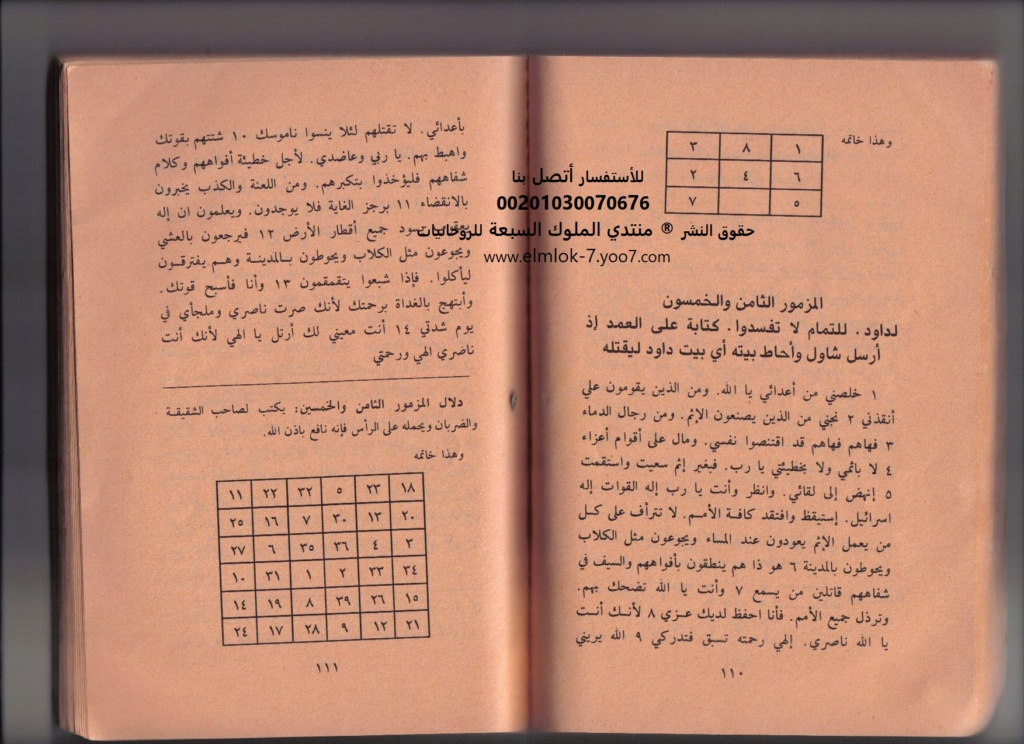 وهذا خاتمه
١ ٨ ٣
٦ ٤ ٢
٥ ٧
للأستفسار أتصل بنا
00201030070676
حقوق النشر ® منتدي الملوك السبعة للروحانيات
www.elmlok-7.yoo7.com
المزمور الثامن والخمسون
لداود. للتمام لا تفسدوا. كتابة على العمد إذ
أرسل شاول وأحاط بيته أي بيت داود ليقتله
١ خلصني من أعدائي يا الله. ومن الذين يقومون علي
أنقذني ٢ نجني من الذين يصنعون الإثم. ومن رجال الدماء
٣ فهاهم فهاهم قد اقتنصوا نفسي. ومال على أقوام أعزاء
٤ لا باثمي ولا بخطيئتي يا رب. فبغير إثم سعيت واستقمت
٥ إنهض إلى لقائي. وانظر وأنت يا رب إله القوات إله
اسرائيل. إستيقظ وافتقد كافة الأمم. لا تترأف على كل
من يعمل الإثم يعودون عند المساء ويجوعون مثل الكلاب
ويحوطون بالمدينة ٦ هو ذا هم ينطقون بأفواههم والسيف في
شفاههم قاتلين من يسمع ٧ وأنت يا الله تضحك بهم.
وترذل جميع الأمم. فأنا احفظ لديك عزي ٨ لأنك أنت
يا الله ناصري. إلهي رحمته تسبق فتدركي ٩ الله يريني
١١٠
بأعدائي. لا تقتلهم لئلا ينسوا ناموسك ١٠ شتتهم بقوتك
واهبط بهم. يا ربي وعاضدي. لأجل خطيئة أفواههم وكلام
شفاههم فليؤخذوا بتكبرهم. ومن اللعنة والكذب يخبرون
بالانقضاء ١١ برجز الغاية فلا يوجدون. ويعلمون ان إله
يسود جميع أقطار الأرض ١٢ فيرجعون بالعشي
ويجوعون مثل الكلاب ويحوطون بالمدينة وهم يفترقون
ليأكلوا. فإذا شبعوا يتقمقمون ١٣ وأنا فأسبح قوتك.
وأبتهج بالغداة برحمتك لأنك صرت ناصري وملجأي في
يوم شدتي ١٤ أنت معيني لك أرتل يا الهي لأنك أنت
ناصري الهي ورحمتي
دلال المزمور الثامن والخمسين: يكتب لصاحب الشقيقة
والضربان ويحمله على الرأس فإنه نافع باذن الله.
وهذا خاتمه
١٨ ٢٣ ٥ ٣٢ ٢٢ ١١
٢٠ ١٣ ٣٠ ٧ ١٦ ٢٥
٣ ٤ ٣٦ ٣٥ ٦ ٢٧
٣٤ ٣٣ ٢ ١ ٣١ ١٠
١٥ ٢٦ ٣٩ ٨ ١٩ ١٤
٢١ ١٢ ٩ ٢٨ ١٧ ٢٤
١١١